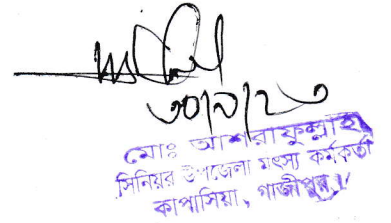 ৩০/৯/২৩
মোঃ আশরাফুল্লাহ
সিনিয়র উপজেলা মৎস্য কর্মকর্তা
কাপাসিয়া, গাজীপুর।